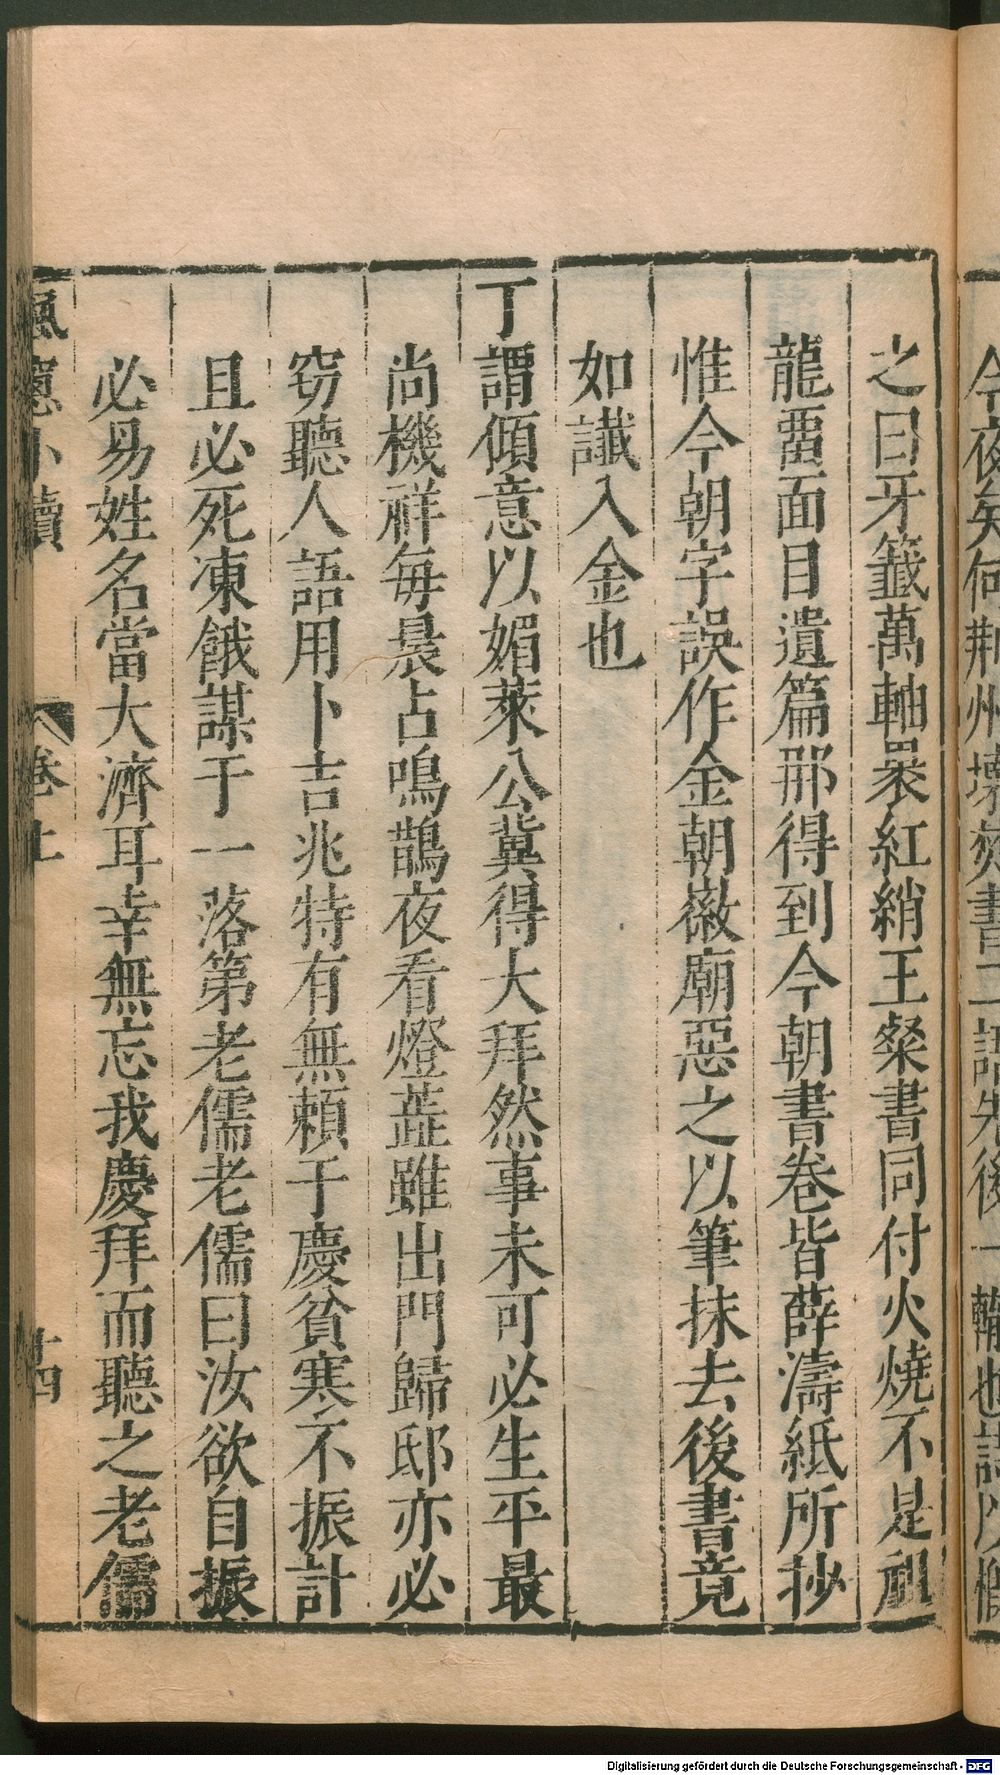 今夜矣何荆州壊焚書二語先後一轍也詩以慨
之曰牙籤萬軸裛紅綃王粲書同付火燒不是祖
龍畱面目遺篇那得到今朝書卷皆薛濤紙所抄
惟今朝字誤作金朝徽廟惡之以筆抹去後書竟
如讖入金也
丁謂傾意以媚萊公冀得大拜然事未可必生平最
尚機祥每晨占鳴鵲夜看燈蕋雖出門歸邸亦必
窃聽人語用卜吉兆特有無賴于慶貧寒不振計
且必死凍餓謀于一落第老儒老儒曰汝欲自振
必易姓名當大濟耳幸無忘我慶拜而聽之老儒
楓窻小牘 卷上 十四
Digitalisierung gefördert durch die Deutsche Forschungsgemeinschaft - DFG